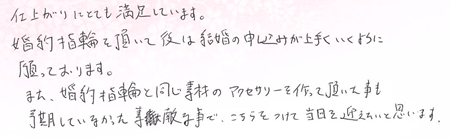 仕上がりにとても満足しています。
婚約指輪を頂いて後は結婚の申込みが上手くいくように
願っております。
また、婚約指輪と同じ素材のアクセサリーを作って頂いた事も
予期していなかった素敵な事で、こちらをつけて当日を迎えたいと思います。